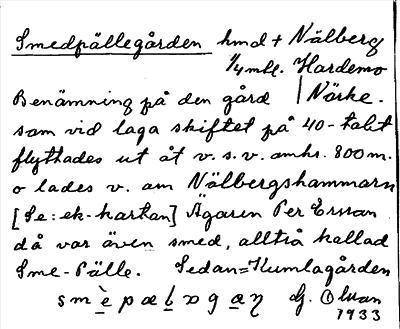 Smedpällegården hmd + Nälberg
1/4 mtl. Hardemo
Benämning på den gård | Närke.
som vid laga skiftet på 40-talet
flyttades ut åt v.s.v. omkr. 800 m.
o lades v. om Nälbergshammarn
[Se: ek-kartan] Ägaren Per Ersson
då var även smed, alltså kallad
Sme-Pälle. Sedan=Kumlagården
G.
1933